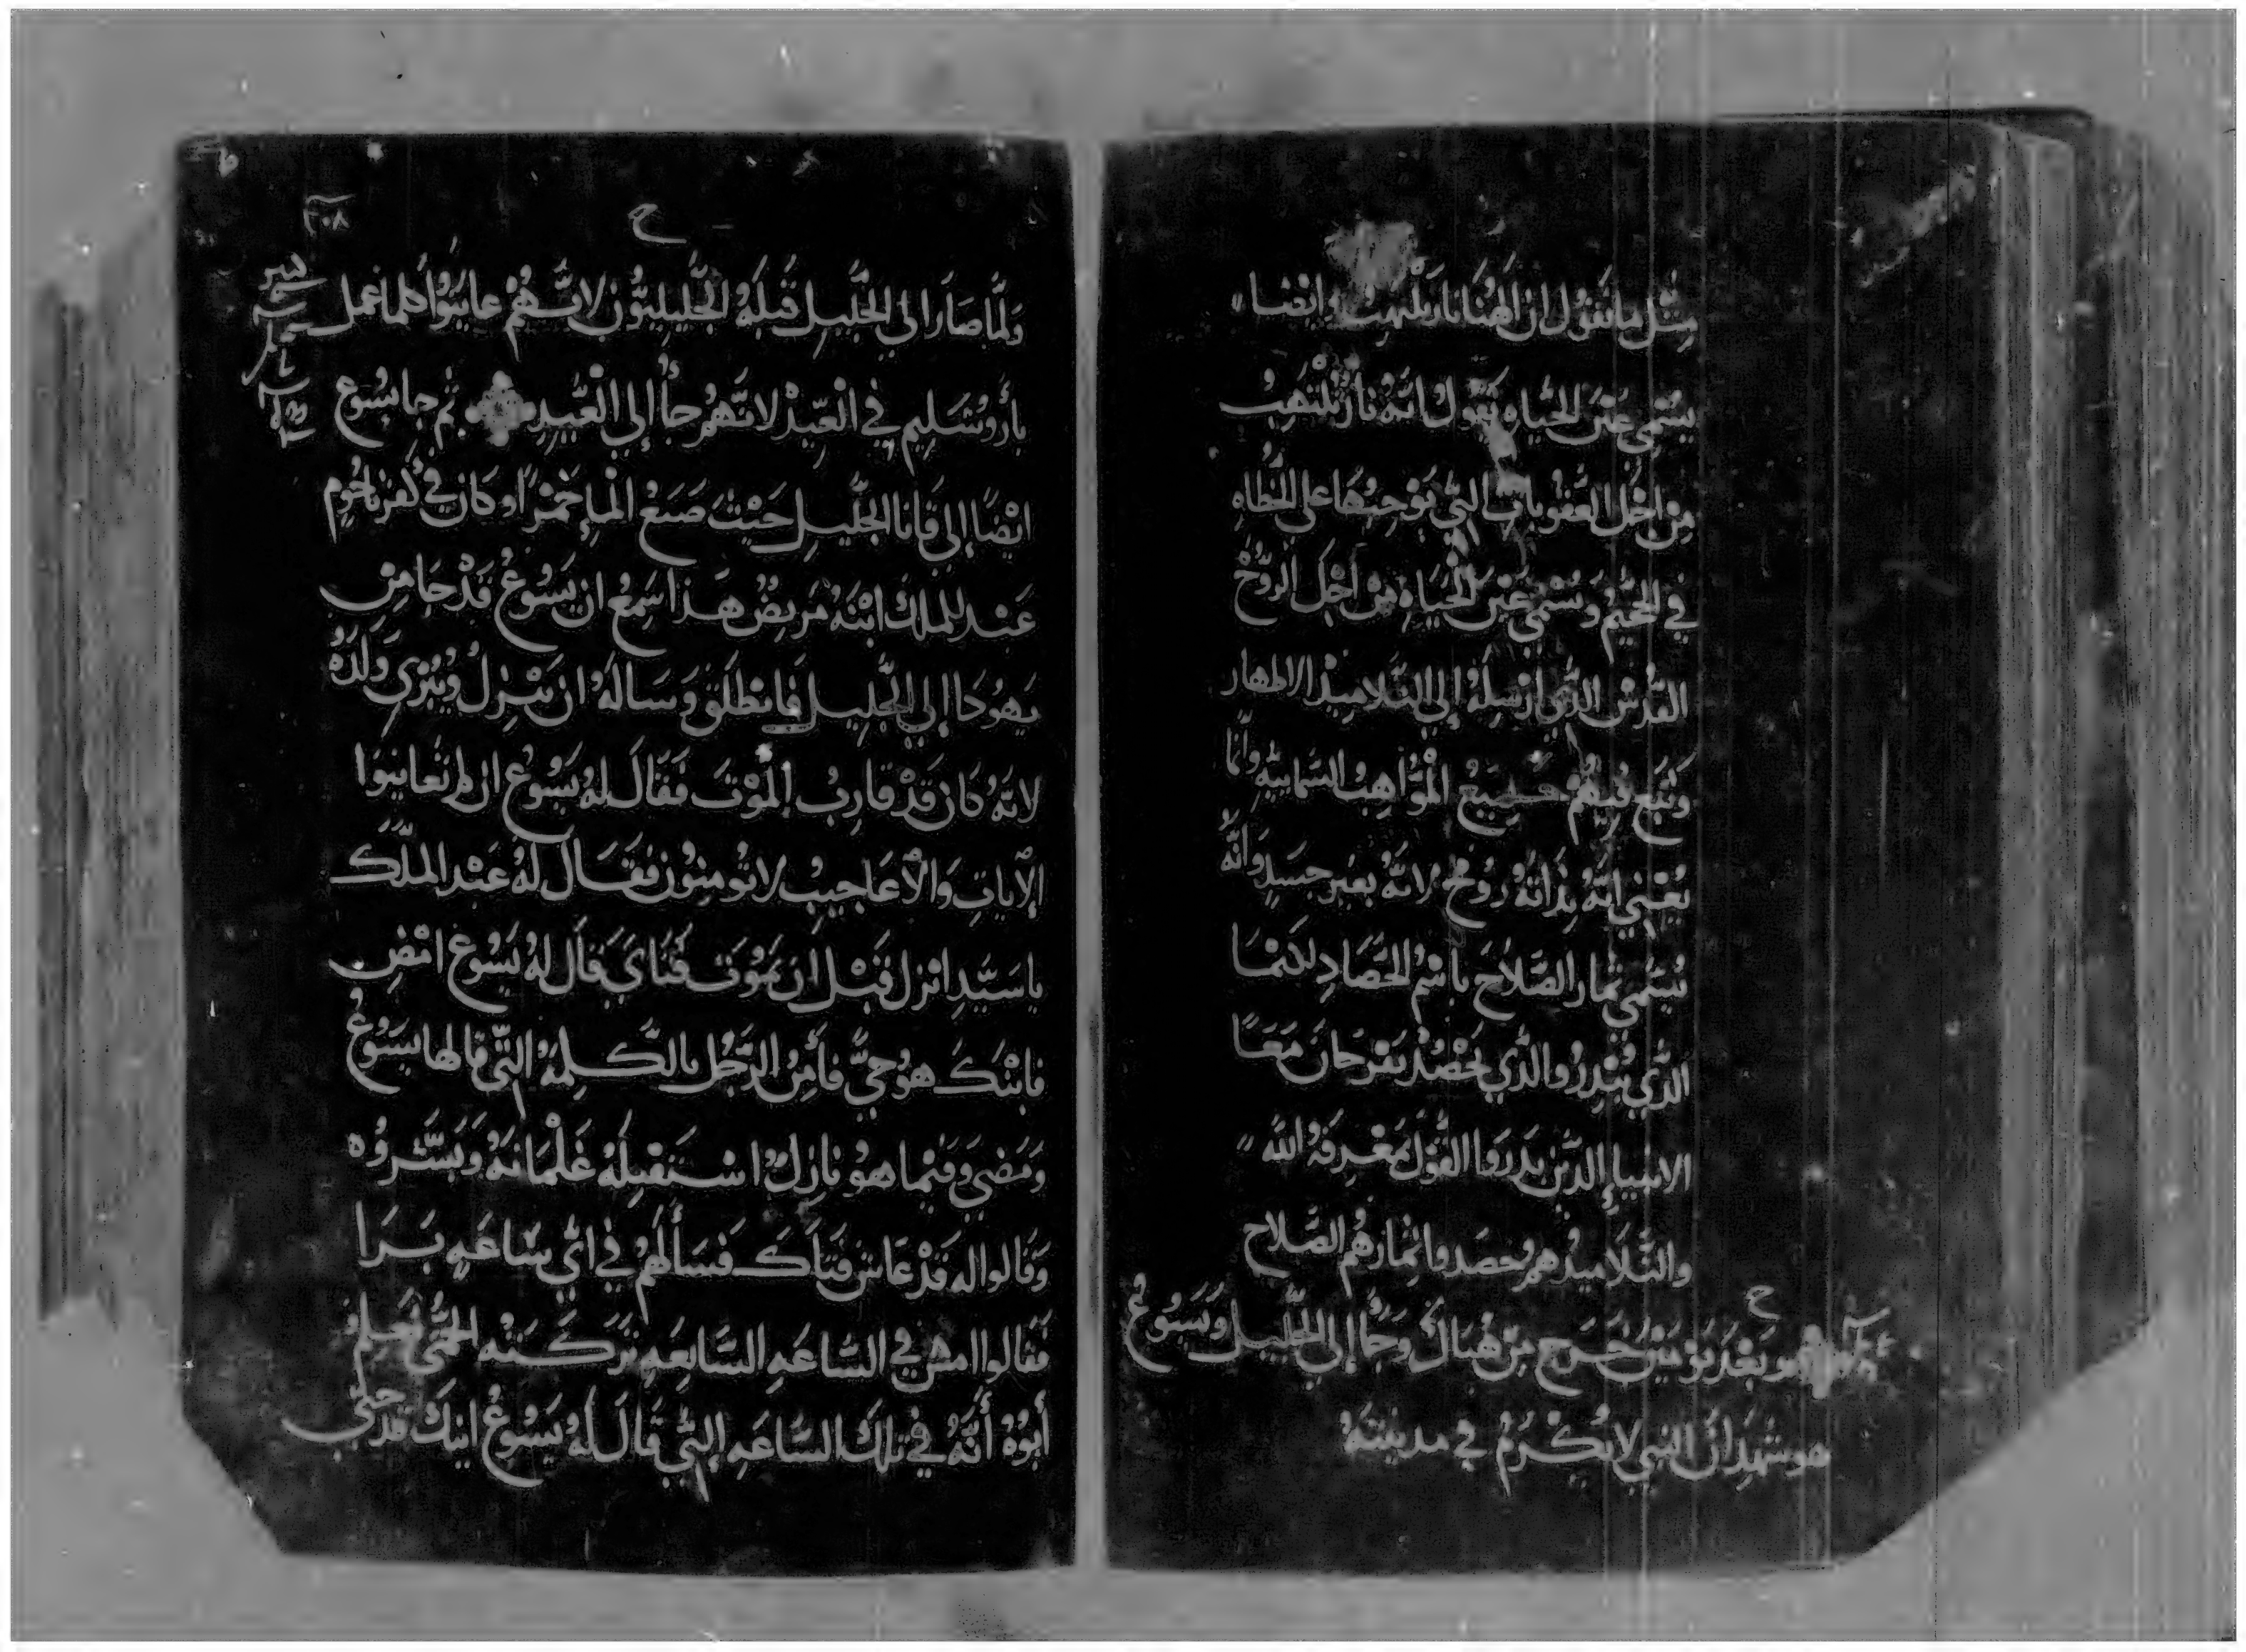 مِثل ما نقول ان الهنا نار تلتهب وايضا
يُسَمى عَين الحَياه تقول انه نارٌ تلتهبُ
مِن اجل العقوبات التي يوجبها على الخطاه
في الجحيم ويُسمى عَين الحَياه من اجل الروح
القدس الذي ارسله إلى التلاميذ الاطهار
ونبع فيهُم جميع المواهب السمايية وانما
يعني انه بذاته روح لانه بغير جسدٍ وانه
يُسَمي ثمار الصَّلاحَ باسم الحَصَادِ لكنما
الذي يبدرُ والذي يحصد يفرحان مَعَا
الانبياءِ الدين بدروا القول بمعرفة الله
والتلاميد هم حصدوا ثمارهم الصَّلاح
ح
وبَعْد يَومَين خَرج مِن هُناك وَجَا إلي الجليل ويَسُوعُ
هو شهد أن النبي لا يُكرَمُ في مدينته
ح
٣٠٨
ولمَّا صَارَ الي الجَليل قبلَهُ الجَليليُّون لانَّهُمْ عاينوا كلما عمل
بأروشليم في العيد لانهم جآا إلي العيد ثم جا يسُوع
ايْضًا إلى قانا الجليل حَيْث صَنع الماِ خمرًا وكان في كفرناحوم
عَبْد للملك ابنَهُ مَريضٌ هَذا سَمِعَ ان يَسُوعُ قَدْ جَا مِن
يَهُودَا إلي الجليل فانطلق وَسَالهُ ان يَنزل ويُبْري وَلَدهُ
لانهُ كان قَدْ قاربُ المَوْتَ فقال لهُ يَسُوعُ ان لم تعاينوا
الآياتِ وَالأعَاجيبُ لا تُومنون فقَال لهُ عَبْد الملك
يا سَيّدِ انزل قَبْل ان يَموت فتَايَ قال لهُ يَسُوعُ امْض
فابنكَ هو حيّ فأمن الرَّجُل بالكلمَهْ التي قالها يسَوعُ
وَمضي وفيما هو نازلٌ استقبلهُ غلمَانهُ وَبَشَّروُه
وَقالوا له قَدْ عاش فتاكَ فسألَهُم في ايّ سَاعَهٍ بَرَا
فقالوا امس في السَّاعَهِ السَّابعهِ تركَتهُ الحُمَّى فعلِم
أبوهُ أنَّهُ في تلك السَّاعَهِ التي قَال لهُ يَسُوعُ ابنك قد حيّ